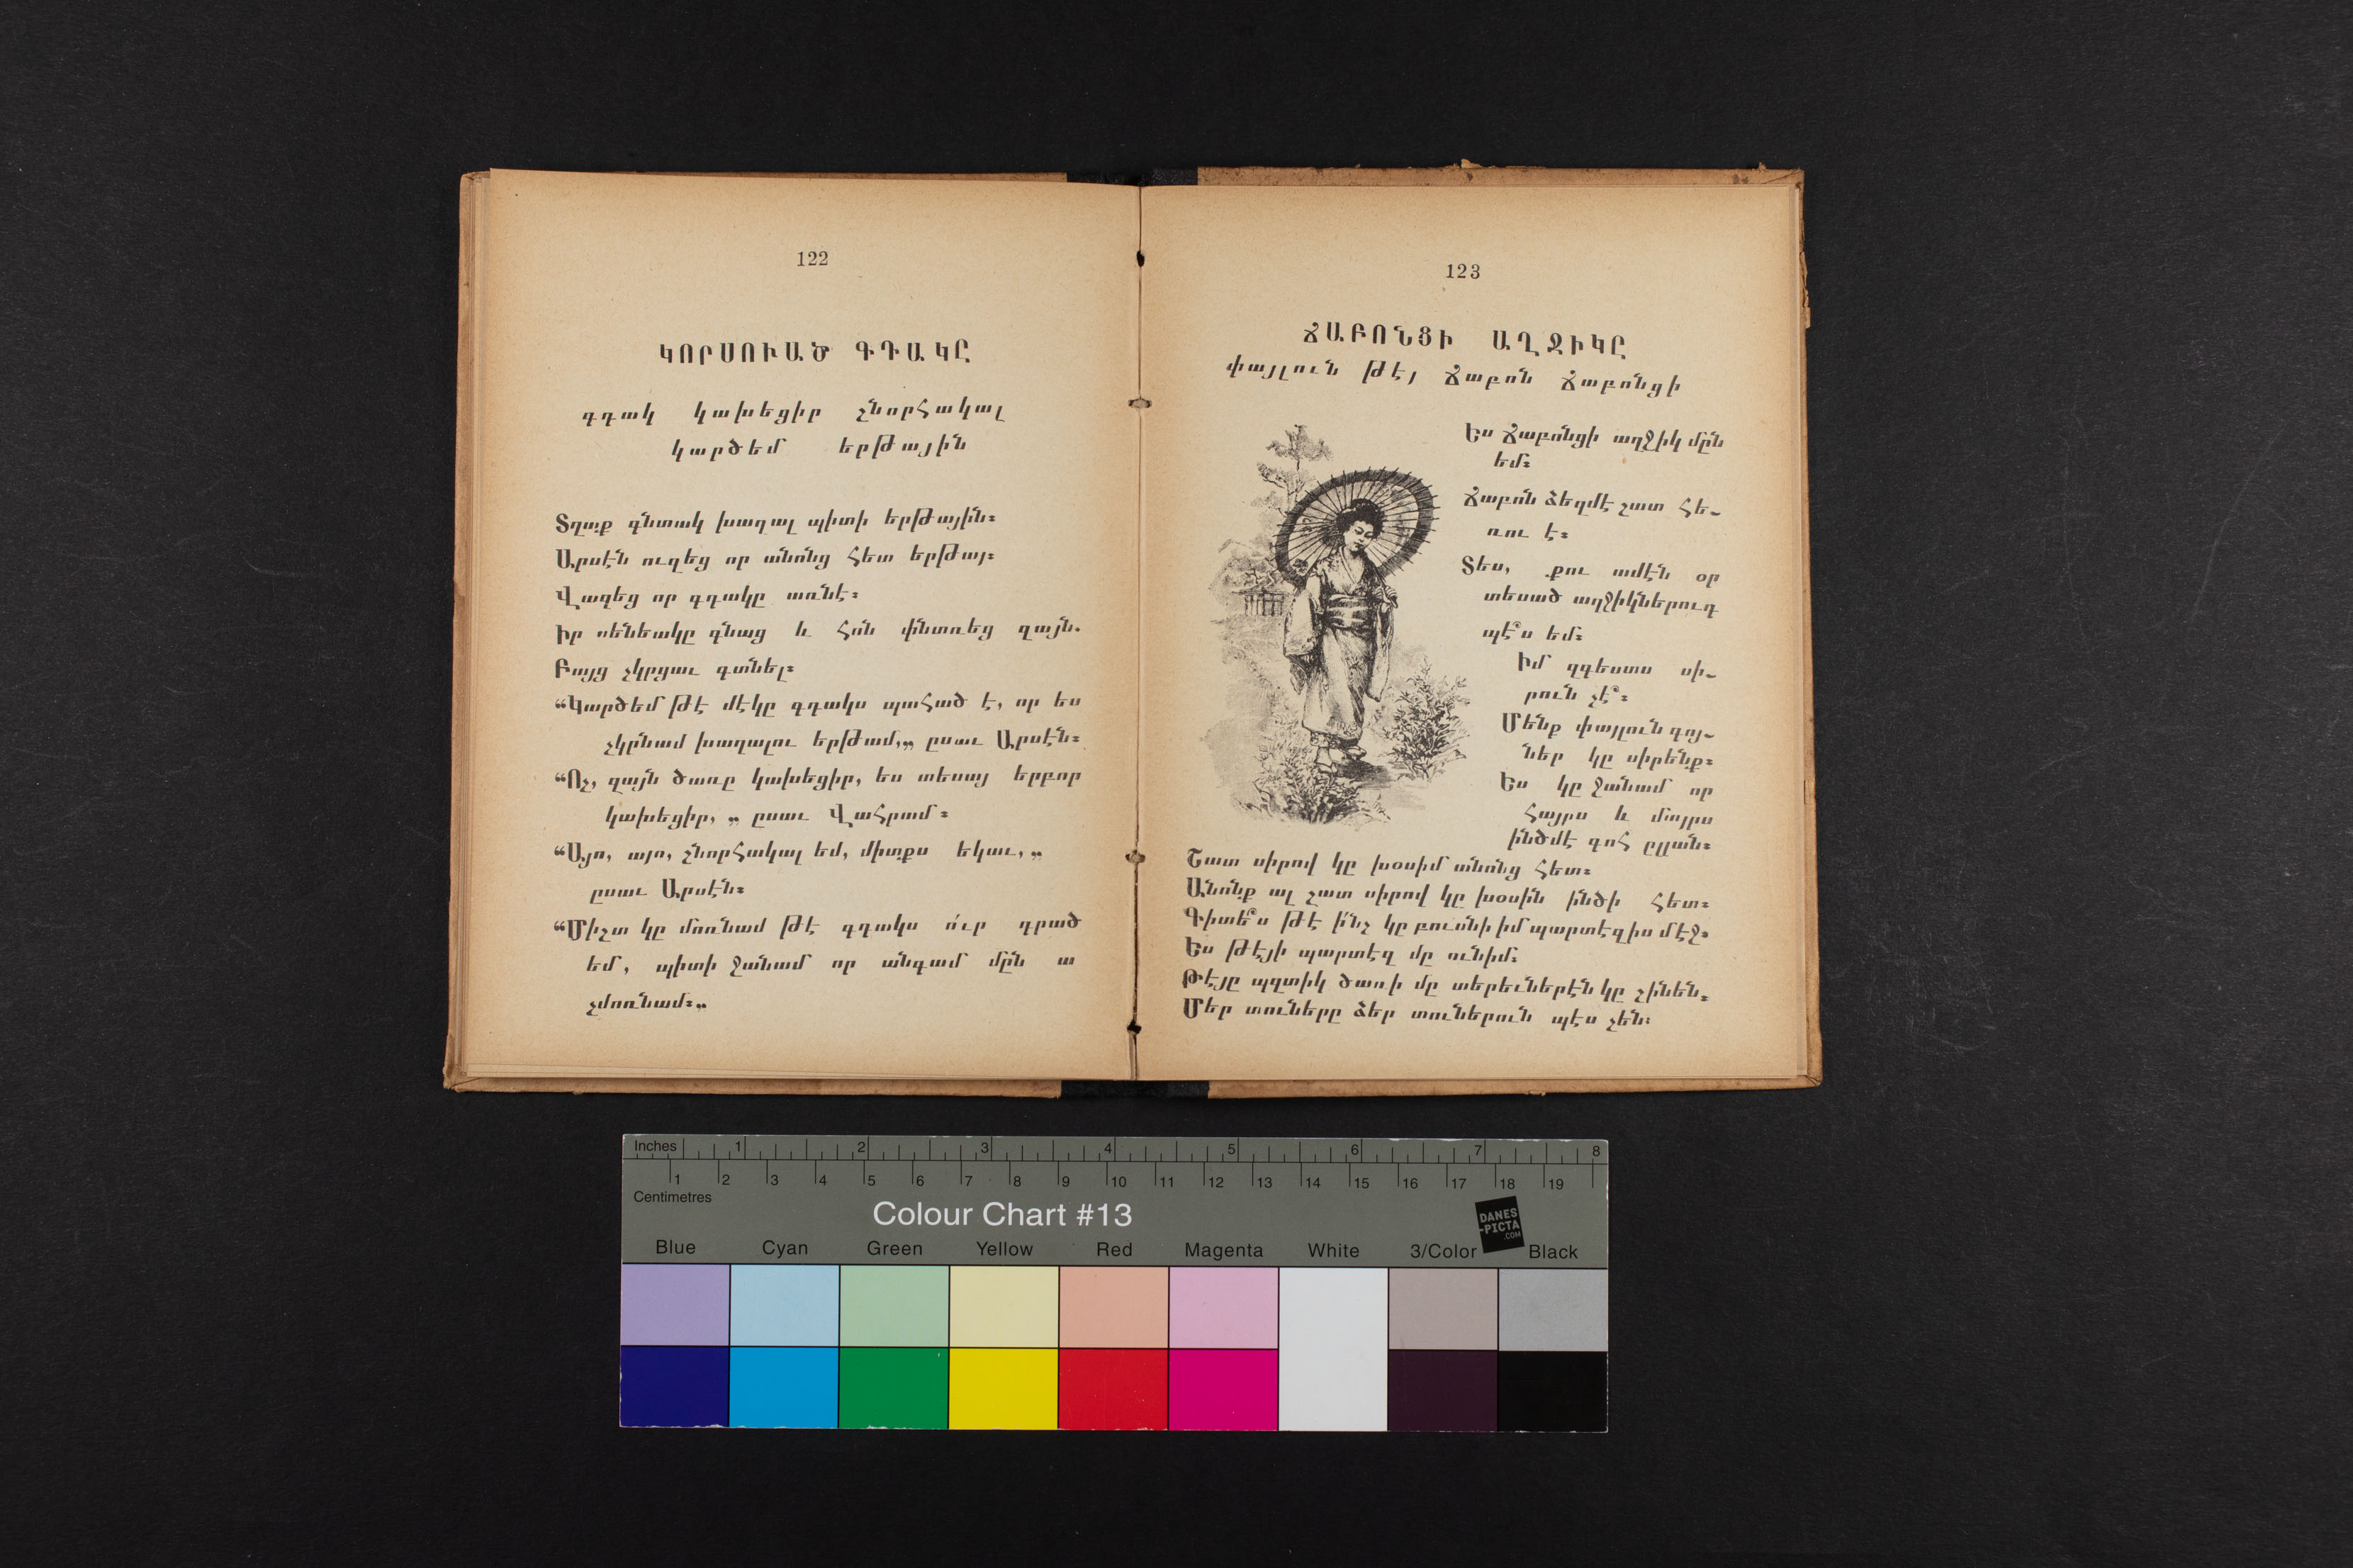 122
ԿՈՐՍՈՒԱԾ ԳԴԱԿԸ
գդակ կախեցիր շնորհակալ
կարծեմ երթային
Տղաք գնտակ խաղալ պիտի երթային։
Արսէն ուղեց որ անոնց հետ երթայ։
Վազեց որ գդակը առնէ։
Իր սենեակը գնաց և հոն փնտռեց զայն.
Բայց չկրցաւ գտնել։
“Կարծեմ թէ մէկը գդակս պահած է, որ ես
չկրնամ խաղալու երթամ,„ ըսաւ Արսէն։
“Ոչ, զայն ծառը կախեցիր, ես տեսայ երբոր
կախեցիր, „ ըսաւ Վահրամ։
“Այո, այո, շնորհակալ եմ, միտքս եկաւ, „
ըսաւ Արսէն։
“Միշտ կը մոռնամ թէ գդակս ո՛ւր դրած
եմ, պիտի ջանամ որ անգամ մըն ա
չմոռնամ։„
123
ՃԱԲՈՆՑԻ ԱՂՋԻԿԸ
փայլուն թէյ Ճաբոն Ճաբոնցի
Ես Ճաբոնցի աղջիկ մըն
եմ։
Ճաբոն ձեզմէ շատ հե-
ռու է։
Տես, քու ամէն օր
տեսած աղջիկներուդ
պէ՞ս եմ։
Իմ զգեստս սի-
րուն չէ՞։
Մենք փայլուն գոյ-
ներ կը սիրենք։
Ես կը ջանամ որ
հայրս և մայրս
ինծմէ գոհ ըլլան։
Շատ սիրով կը խօսիմ անոնց հետ։
Անոնք ալ շատ սիրով կը խօսին ինծի հետ։
Գիտե՞ս թէ ի՛նչ կը բուսնի իմ պարտէզիս մէջ։
Ես թէյի պարտէզ մը ունիմ։
Թէյը պզտիկ ծառի մը տերեւներէն կը շինեն։
Մեր տուները ձեր տուներուն պէս չեն։
Inches 1 2 3 4 5 6 7 8
1 2 3 4 5 6 7 8 9 10 11 12 13 14 15 16 17 18 19
Centimetres
Colour Chart #13
DANES
-PICTA
.COM
Blue Cyan Green Yellow Red Magenta White 3/Color Black